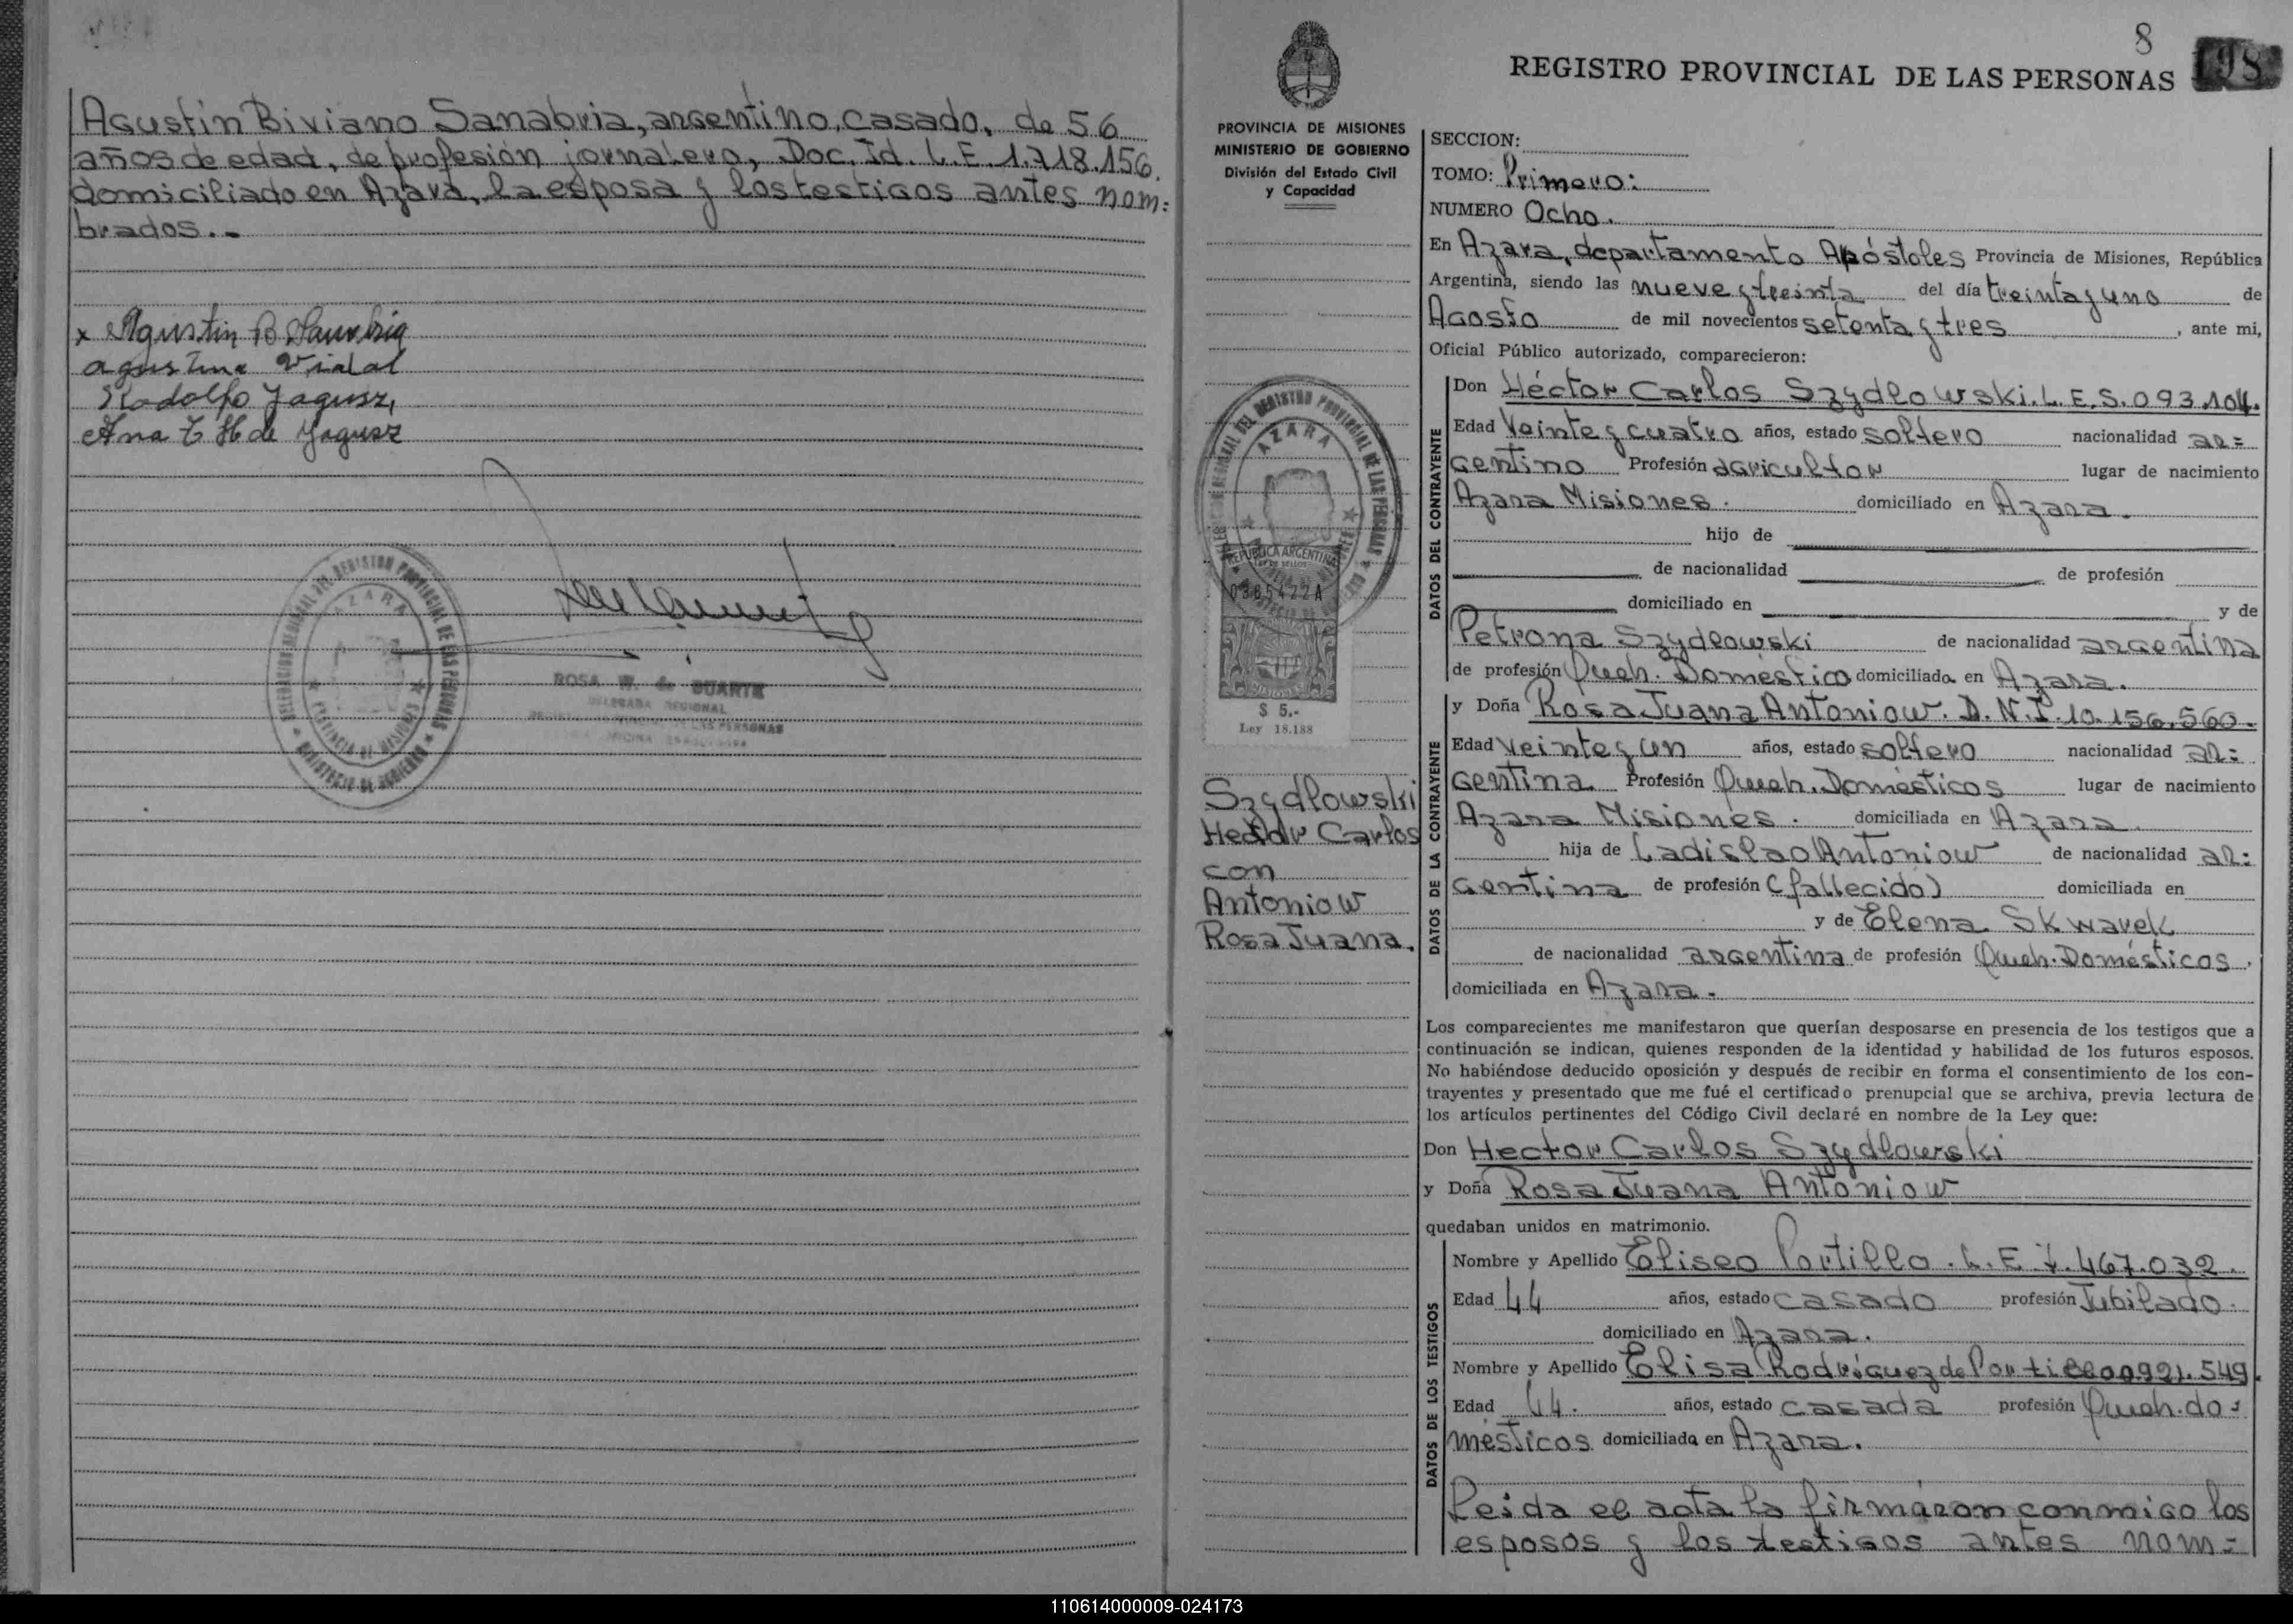 Agustin Biviano Sanabria, argentino, casado, de 56
años de edad, de profesión jornalero, Doc. Id. L.E. 1.718.156.
domiciliado en Azara, la esposa y los testigos antes nom:
brados..-
x Agustin B Sanabria
agustina Vidal
Rodolfo Jagusz,
Ana T H de Jagusz
DELEGACION REGIONAL DEL REGISTRO PROVINCIAL DE LAS PERSONAS
AZARA
PROVINCIA DE MISIONES
MINISTERIO DE GOBIERNO
ROSA de DUARTE
DELEGADA REGIONAL
DE LAS PERSONAS
8
198
REGISTRO PROVINCIAL DE LAS PERSONAS
PROVINCIA DE MISIONES
MINISTERIO DE GOBIERNO
División del Estado Civil
y Capacidad
REGISTRO PROVINCIAL DE LAS PERSONAS
AZARA
REPUBLICA ARGENTINA
LEY DE SELLOS
0385422A
MISIONES
$ 5.-
Ley 18.188
Szydlowski
Hector Carlos
con
Antoniow
Rosa Juana.
SECCION:
TOMO: Primero:
NUMERO Ocho.
En Azara, departamento Apóstoles Provincia de Misiones, República
Argentina, siendo las nueve y treinta del día treinta y uno de
Agosto de mil novecientos setenta y tres, ante mi,
Oficial Público autorizado, comparecieron:
DATOS DEL CONTRAYENTE
Don Héctor Carlos Szydlowski. L.E. 5.093.104.
Edad Veinte y cuatro años, estado soltero nacionalidad ar=
gentino Profesión agricultor lugar de nacimiento
Azara Misiones. domiciliado en Azara.
hijo de
de nacionalidad de profesión
domiciliado en y de
Petrona Szydlowski de nacionalidad argentina
de profesión Queh. Doméstico domiciliada en Azara.
DATOS DE LA CONTRAYENTE
y Doña Rosa Juana Antoniow. D.N.I. 10.156.560.
Edad Veinte y un años, estado soltero nacionalidad ar:
gentina. Profesión Queh. Domésticos lugar de nacimiento
Azara Misiones. domiciliada en Azara.
hija de Ladislao Antoniow de nacionalidad ar:
gentina de profesión (fallecido) domiciliada en
y de Elena Skwarek
de nacionalidad argentina de profesión Queh. Domésticos,
domiciliada en Azara.
Los comparecientes me manifestaron que querían desposarse en presencia de los testigos que a
continuación se indican, quienes responden de la identidad y habilidad de los futuros esposos.
No habiéndose deducido oposición y después de recibir en forma el consentimiento de los con-
trayentes y presentado que me fué el certificado prenupcial que se archiva, previa lectura de
los artículos pertinentes del Código Civil declaré en nombre de la Ley que:
Don Hector Carlos Szydlowski
y Doña Rosa Juana Antoniow
quedaban unidos en matrimonio.
DATOS DE LOS TESTIGOS
Nombre y Apellido Eliseo Portillo. L.E 7.467.032.
Edad 44 años, estado casado profesión Jubilado.
domiciliado en Azara.
Nombre y Apellido Elisa Rodríguez de Portillo 0.921.549.
Edad 44. años, estado casada profesión Queh. do:
mésticos domiciliada en Azara.
Leida el acta la firmáron conmigo los
esposos y los testigos antes nom=
110614000009-024173